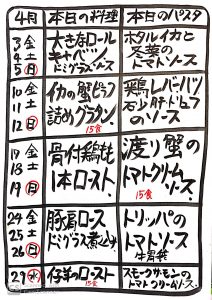 4月 本日の料理 本日のパスタ
3金
4土
5日
大きなロール
キャベツ
ドミグラスソース
ホタルイカと
トマトソース
10金
11土
12日
イカの蟹ピラフ
詰めグラタン。
15食
鶏レバーハツ
砂肝
のソース
17金
18土
19日
骨付鶏もも
1本ロースト。
15食
渡り蟹の
トマトクリーム
ソース。
15食
24金
25土
26日
豚肩ロース
ドミグラス煮込み
トリッパの
トマトソース
牛胃袋
29水
仔羊のロースト
15食
スモークサーモンの
トマトクリームソース。